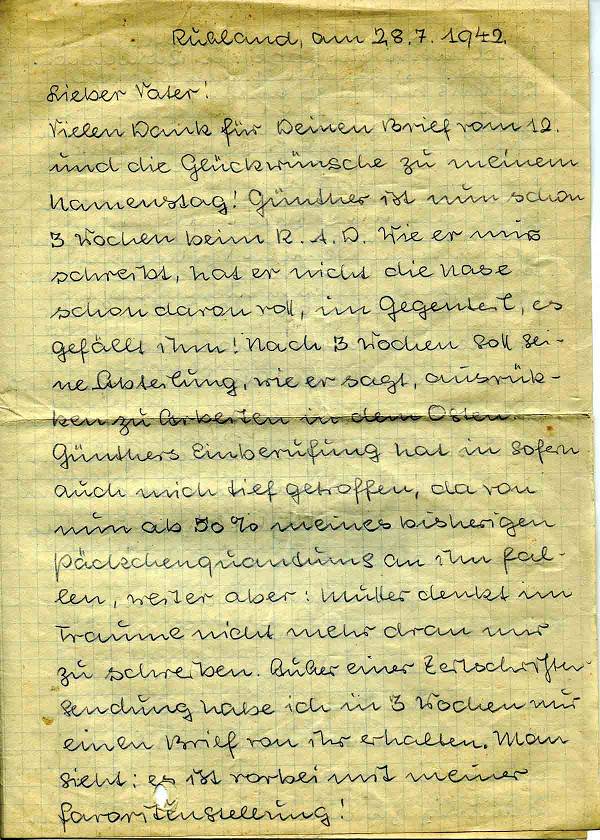 Rußland, am 28.7.1942.
Lieber Vater!
Vielen Dank für Deinen Brief vom 12.
und die Glückwünsche zu meinem
Namenstag! Günther ist nun schon
3 Wochen beim R.A.D. Wie er mir
schreibt, hat er nicht die Nase
schon davon voll, im Gegenteil, es
gefällt ihm! Nach 3 Wochen soll sei-
ne Abteilung, wie er sagt, ausrük-
ken zu Arbeiten in dem Osten.
Günthers Einberufung hat in sofern
auch mich tief getroffen, da von
nun ab 50% meines bisherigen
Päckchenquantums an ihn fal-
len, weiter aber: Mutter denkt im
Traume nicht mehr dran mir
zu schreiben. Außer einer Zeitschriften-
sendung habe ich in 3 Wochen nur
einen Brief von ihr erhalten. Man
sieht: es ist vorbei mit meiner
Favoritenstellung!